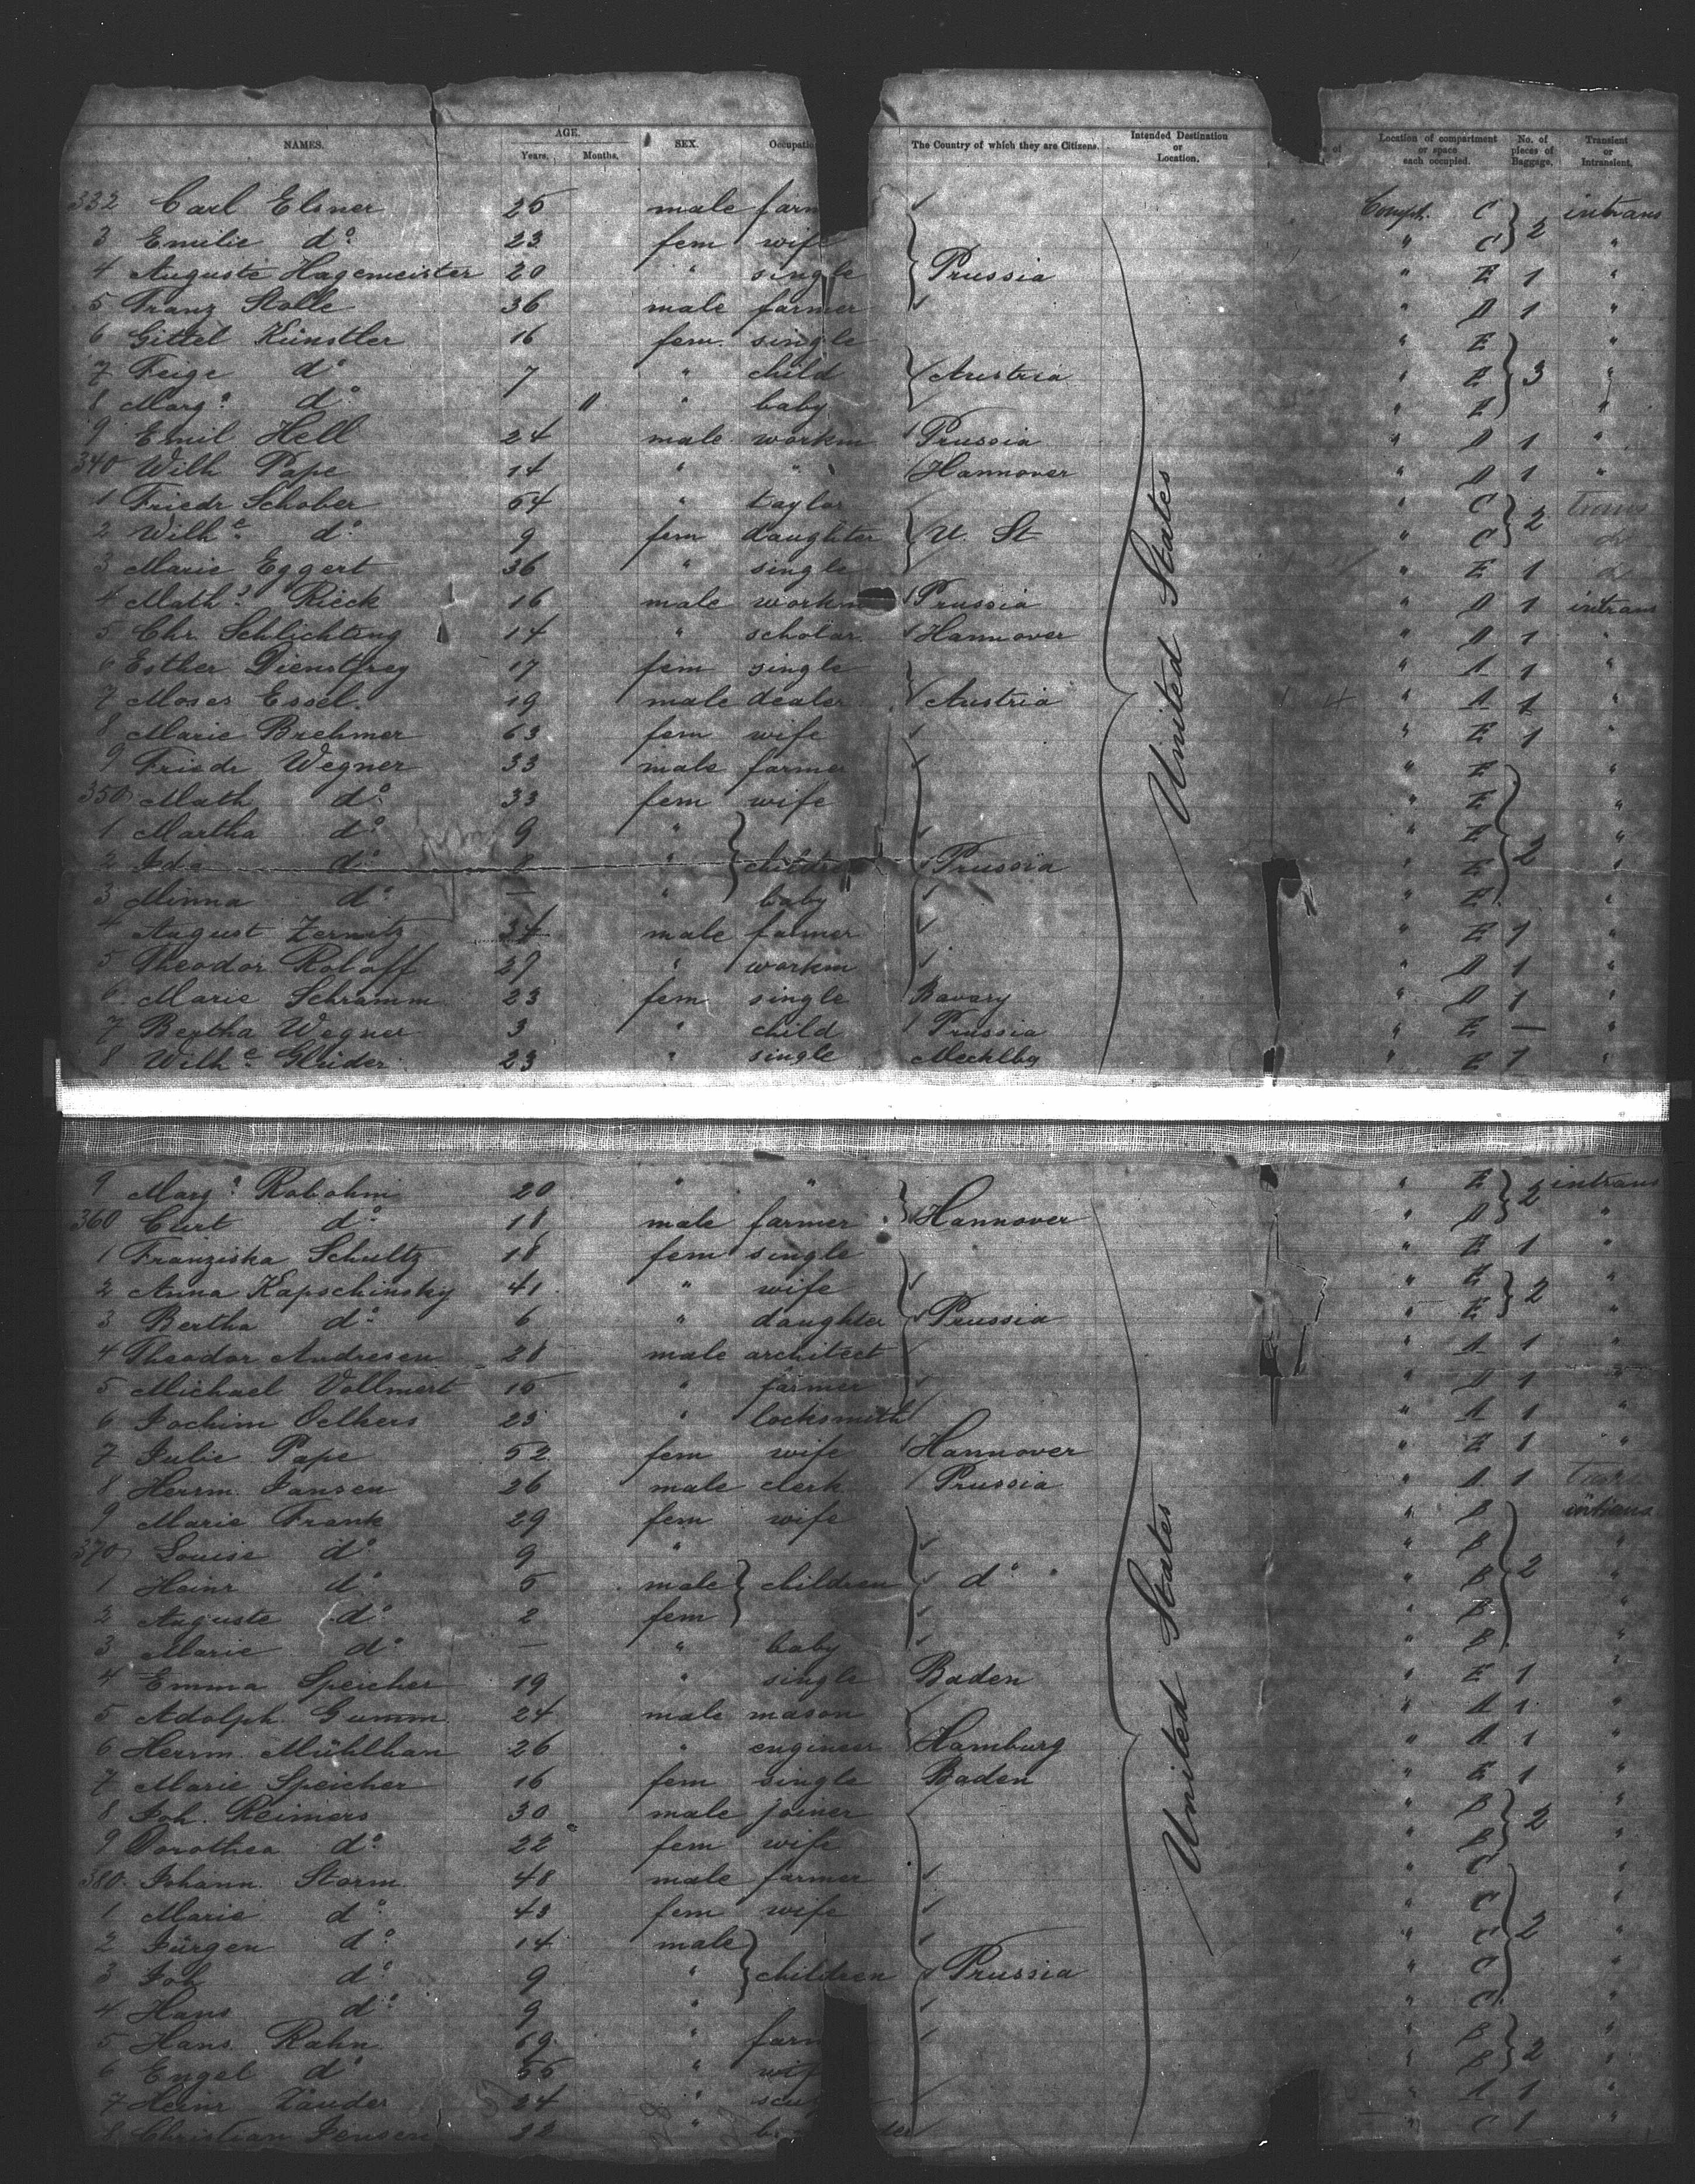 NAMES. AGE. Years. Months. SEX. Occupati The Country of which they are Citizens. Intended Destination or Location. Location of compartment or space each occupied. No. of pieces of Baggage. Transient or Intransient.
332 Carl Elsner 25 male farm Comph. C 2 intrans
3 Emilie do 23 fem wife " C "
4 Auguste Hagemeister 20 " single Prussia " E 1 "
5 Franz Stolle 36 male farmer " A 1 "
6 Gittel Künstler 16 fem. single " E "
7 Feige do 7 " child Austria " E 3 "
8 Marg. do " baby " E "
9 Emil Hell 24 male workm Prussia " A 1 "
340 Wilh Pape 14 " " Hannover " A 1 "
1 Friedr Schober 54 " taylor " C 2 trans
2 Wilhe do 9 fem daughter U. St " C do
3 Marie Eggert 36 " single " E 1 do
4 Math. Rieck 16 male workm Prussia " A 1 intrans
5 Chr. Schlichting 14 " scholar Hannover " A 1 "
6 Esther Dienstfrey 17 fem single " A 1 "
7 Moses Essel. 19 male dealer Austria " A 1 "
8 Marie Brehmer 63 fem wife " E 1 "
9 Friedr Wegner 33 male farmer " E "
350 Math do 33 fem wife " E "
1 Martha do 9 " " E "
2 Ida do 8 " childr Prussia " E 2 "
3 Minna do — " baby " E "
4 August Zernitz 34 male farmer " E 1 "
5 Theodor Roloff 27 " workm " A 1 "
6 Marie Schramm 23 fem single Bavary " A 1 "
7 Bertha Wegner 3 " child Prussia " E — "
8 Wilhe Glüder 23 " single Mecklbg " E 1 "
United States
9 Marg. Robohm 20 " " " E 2 intrans
360 Curt do 18 male farmer Hannover " A "
1 Franziska Schultz 18 fem single " E 1 "
2 Anna Kapschinsky 41 " wife " E 2 "
3 Bertha do 6 " daughter Prussia " E "
4 Theodor Andresen 28 male architect " A 1 "
5 Michael Vollmert 15 " farmer " A 1 "
6 Jochim Oelkers 25 " locksmith " A 1 "
7 Julie Pape 52 fem wife Hannover " E 1 "
8 Herrm. Jansen 26 male clerk Prussia " A 1 trans
9 Marie Frank 29 fem wife " B intrans
370 Louise do 9 " " B "
1 Heinr do 5 male children do " B 2 "
2 Auguste do 2 fem " B "
3 Marie do — " baby " B "
4 Emma Speicher 19 " single Baden " E 1 "
5 Adolph Gumm 24 male mason " A 1 "
6 Herrm. Mühlhan 26 " engineer Hamburg " A 1 "
7 Marie Speicher 16 fem single Baden " E 1 "
8 Joh. Reimers 30 male joiner " B 2 "
9 Dorothea do 22 fem wife " B "
380 Johann Storm 48 male farmer " C "
1 Marie do 43 fem wife " C "
2 Jürgen do 14 male " C 2 "
3 Joh do 9 " children Prussia " C "
4 Hans do 9 " " C "
5 Hans Rahn 69 " farm " B 2 "
6 Engel do 55 " wif " B "
7 Heinr Zander 24 " scu " A 1 "
8 Christian Jensen 22 " " C 1 "
United States